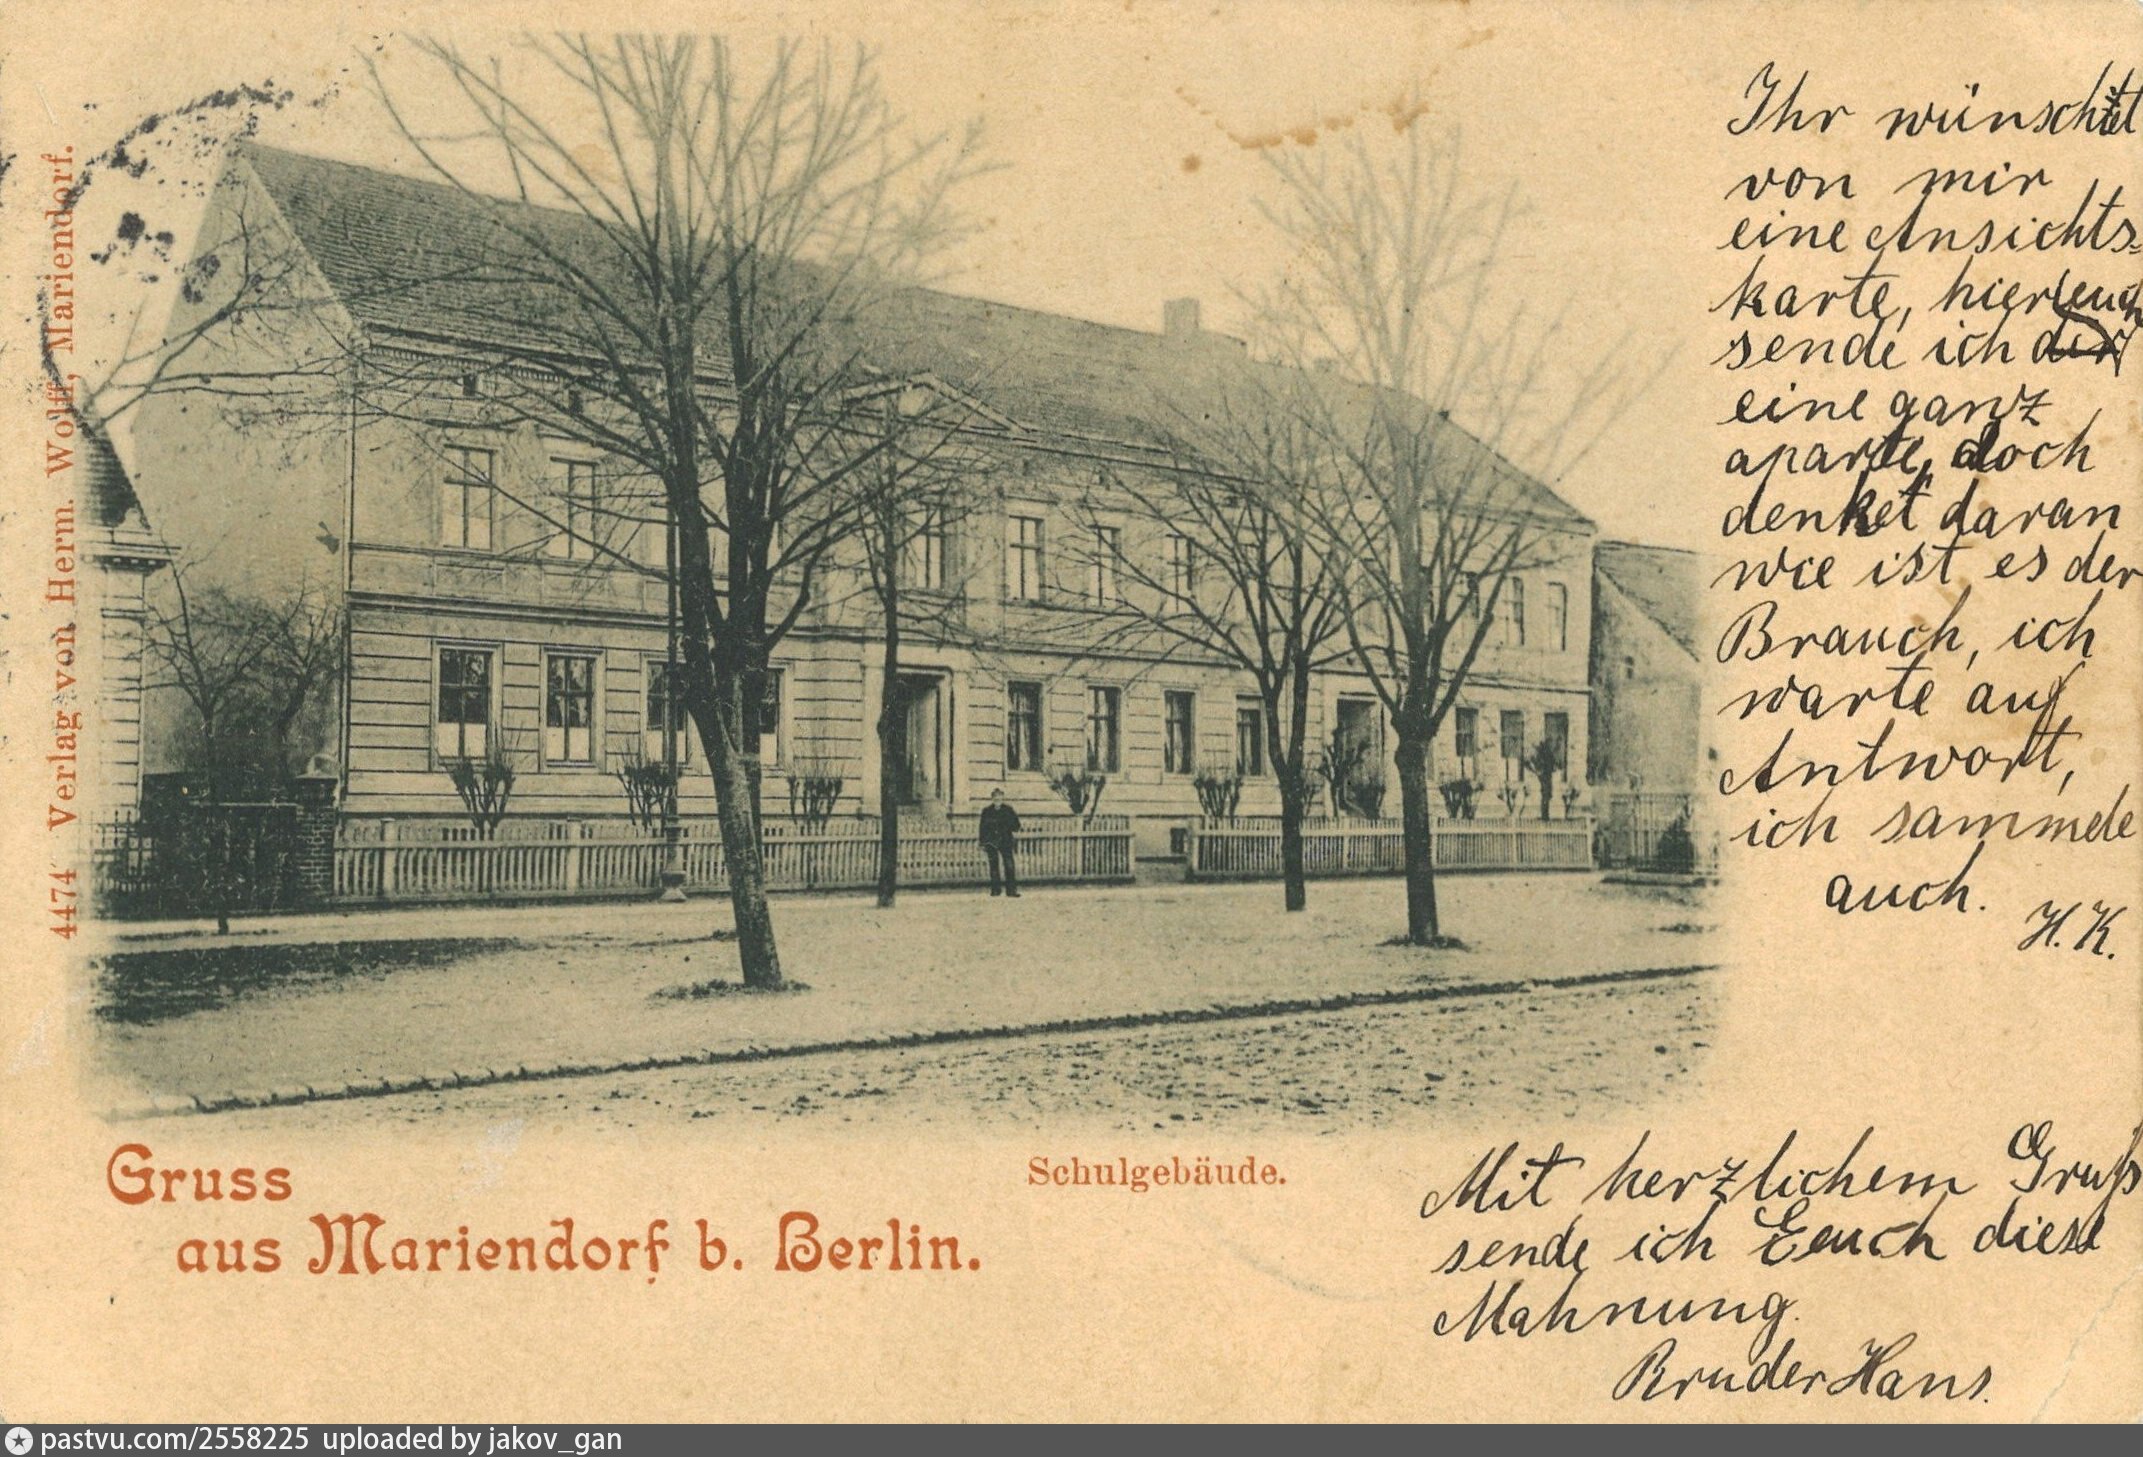 Ihr wünschtet
von mir
eine Ansichts-
karte, hier euch
sende ich dir
eine ganz
aparte, doch
denket daran
wie ist es der
Brauch, ich
warte auf
Antwort,
ich sammele
auch.
H. K.
4474 Verlag von Herm. Wolff, Mariendorf.
Gruss
aus Mariendorf b. Berlin.
Schulgebäude.
Mit herzlichem Gruß
sende ich Euch diese
Mahnung.
Bruder Hans.
pastvu.com/2558225 uploaded by jakov_gan